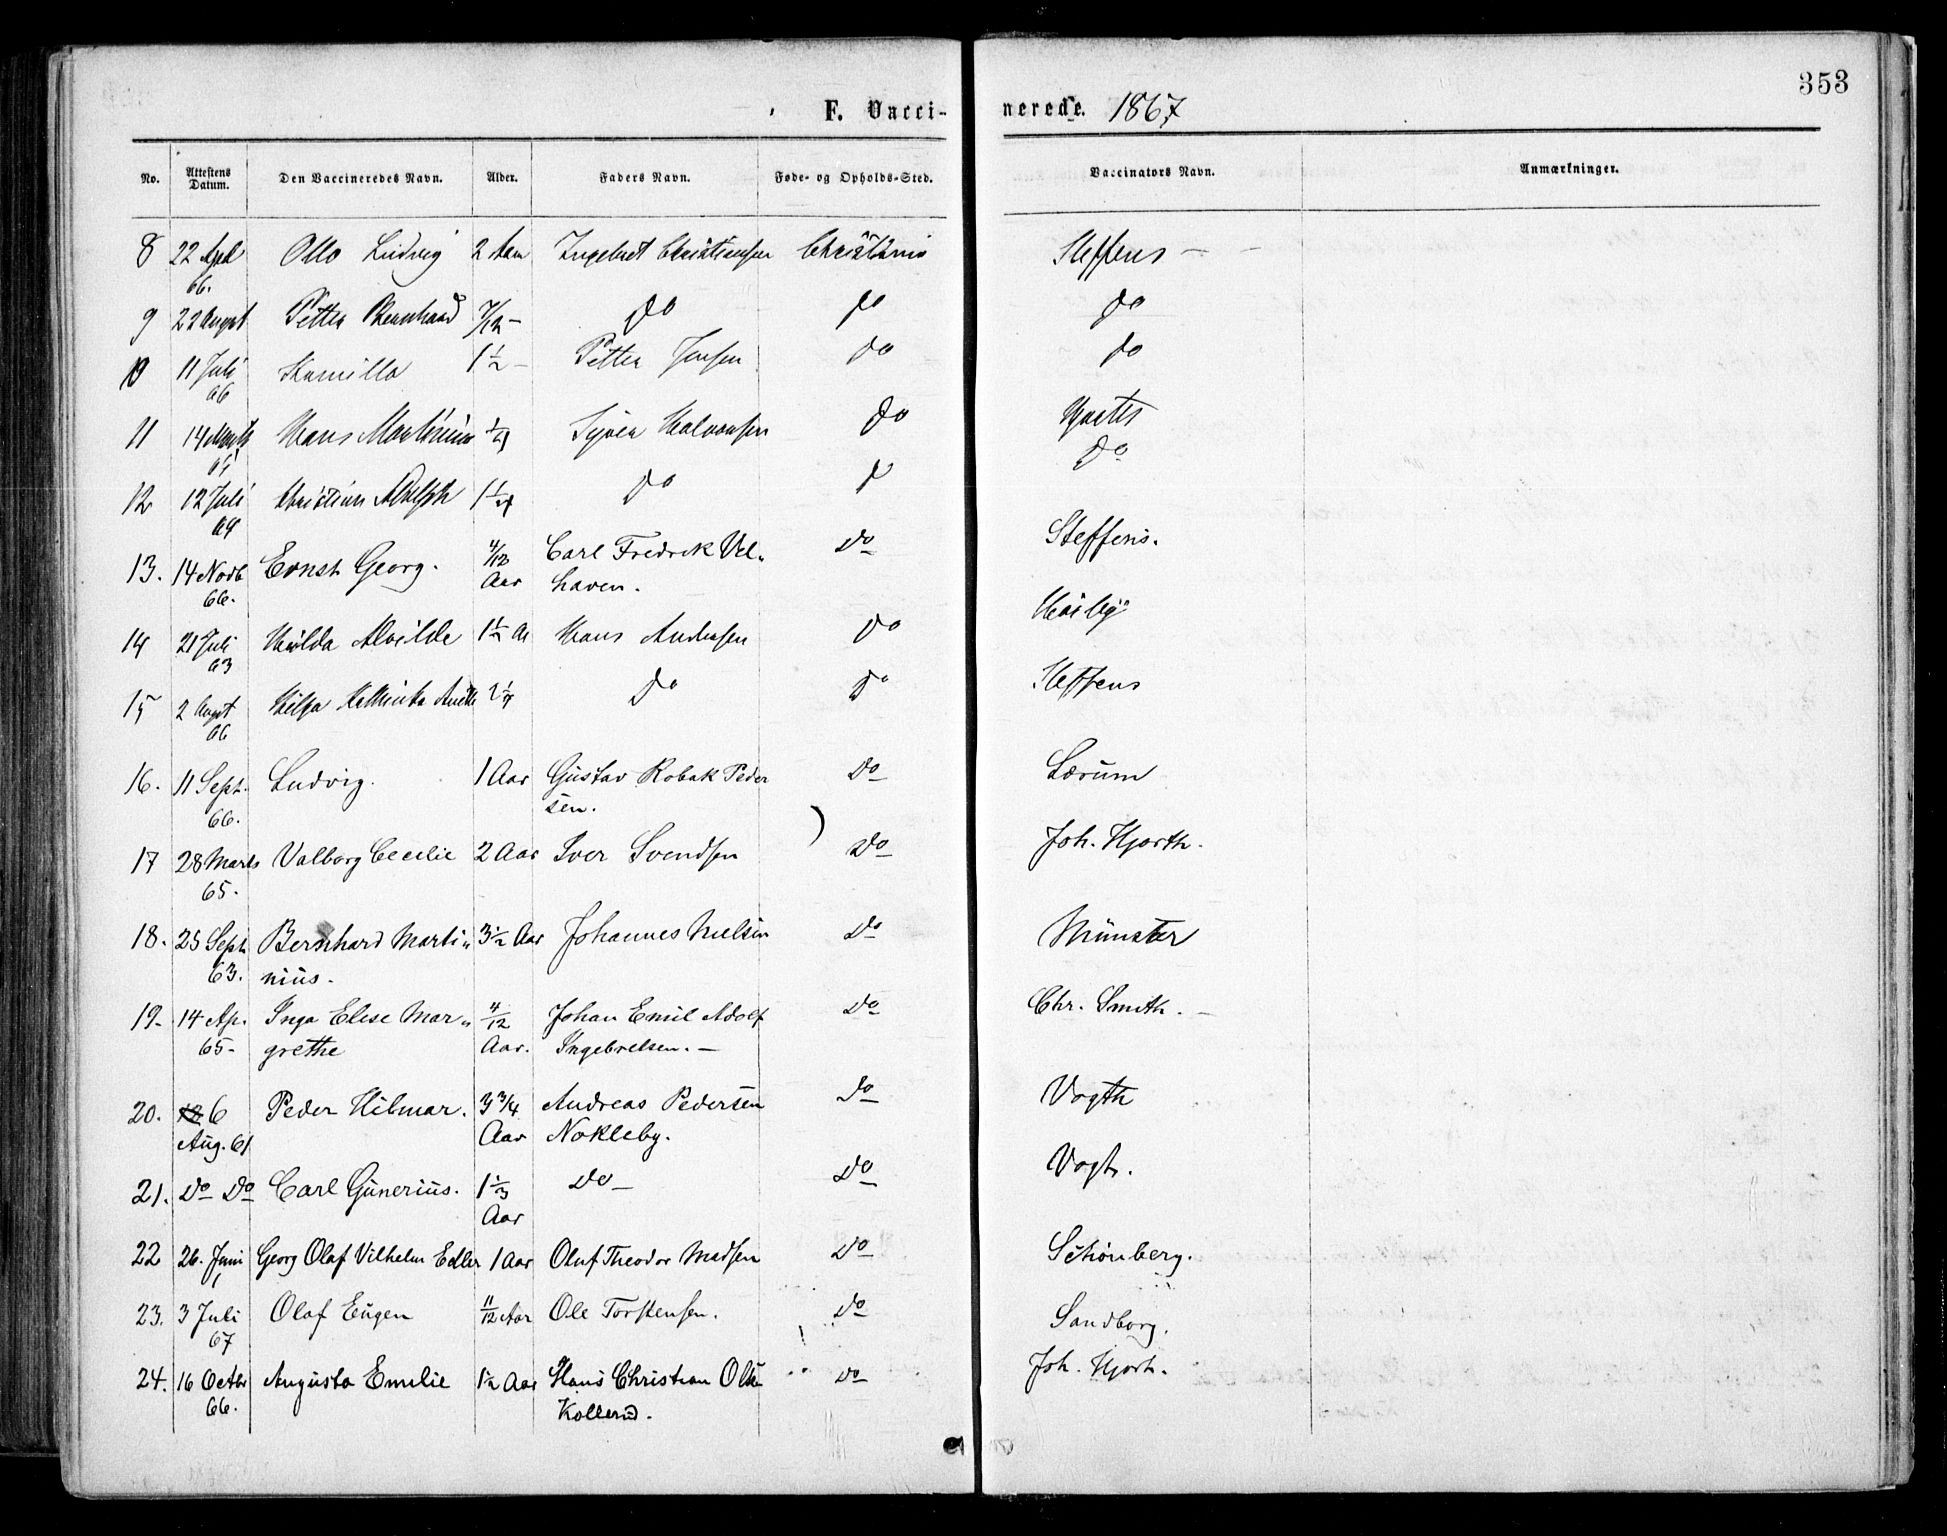 353
F. Vaccinerede. 1867
No. Attestens Datum. Den Vaccineredes Navn. Alder. Faders Navn. Føde- og Opholds-Sted. Vaccinators Navn. Anmærkninger.
8 22 Apl Otto Ludvig 2 Aar Ingebret Christiansen Christiania Steffens
66.
9 22 August Petter Bernhard 7/12 - do do do
10 11 Juli Kamilla 1 1/2 - Petter Jensen do do
66
11 14 Hans Martinius Halvorsen do
12 12 Juli Christian Adolph 1 1/4 do d do
13. 14 Novb Ernst Georg. 4/12 Carl Fredrik Vel- do Steffens.
66. Aar haven.
14 21 Juli Hilda Alvilde 1 1/2 A Hans Andersen do
63
15 2 August do do Steffens
66
16. 11 Sept. Ludvig. 1 Aar Gustav Robak Peder do Lorum
66. sen.
17 28 Marts Valborg Cecilie 2 Aar Iver Svendsen do Joh. Hjorth.
65.
18. 25 Sept. Bernhard Marti- 3 1/2 Aar Johannes Nielsen do Münster
63. nius.
19. 14 Ap. Inga Elise Mar- 4/12 Johan Emil Adolf do Chr. Smith.
65- grethe Aar. Ingebretsen. -
20. 6 Peder Hilmar. 3 3/4 Andreas Pedersen do Vogth
Aug. 61 Aar Nokleby.
21. do do Carl Gunerius. 1 1/3 do do Vogt.
Aar
22 26. Juni Georg Olaf Vilhelm Edler 1 Aar Oluf Theodor Madsen do Schønberg.
23. 3 Juli Olaf Eugen 11/12 Aar Ole Torstensen. do Sandborg.
67
24. 16 Octbr Augusta Emilie 1 1/2 Aar Hans Christian Olsen do Joh. Hjorth.
66. Kollerud.